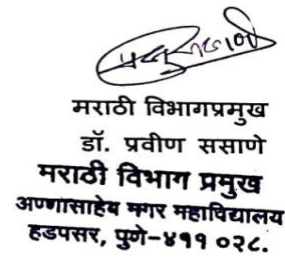 मराठी विभागप्रमुख
डॉ. प्रवीण ससाणे
मराठी विभाग प्रमुख
अण्णासाहेब मगर महाविद्यालय
हडपसर, पुणे-४११ ०२८.